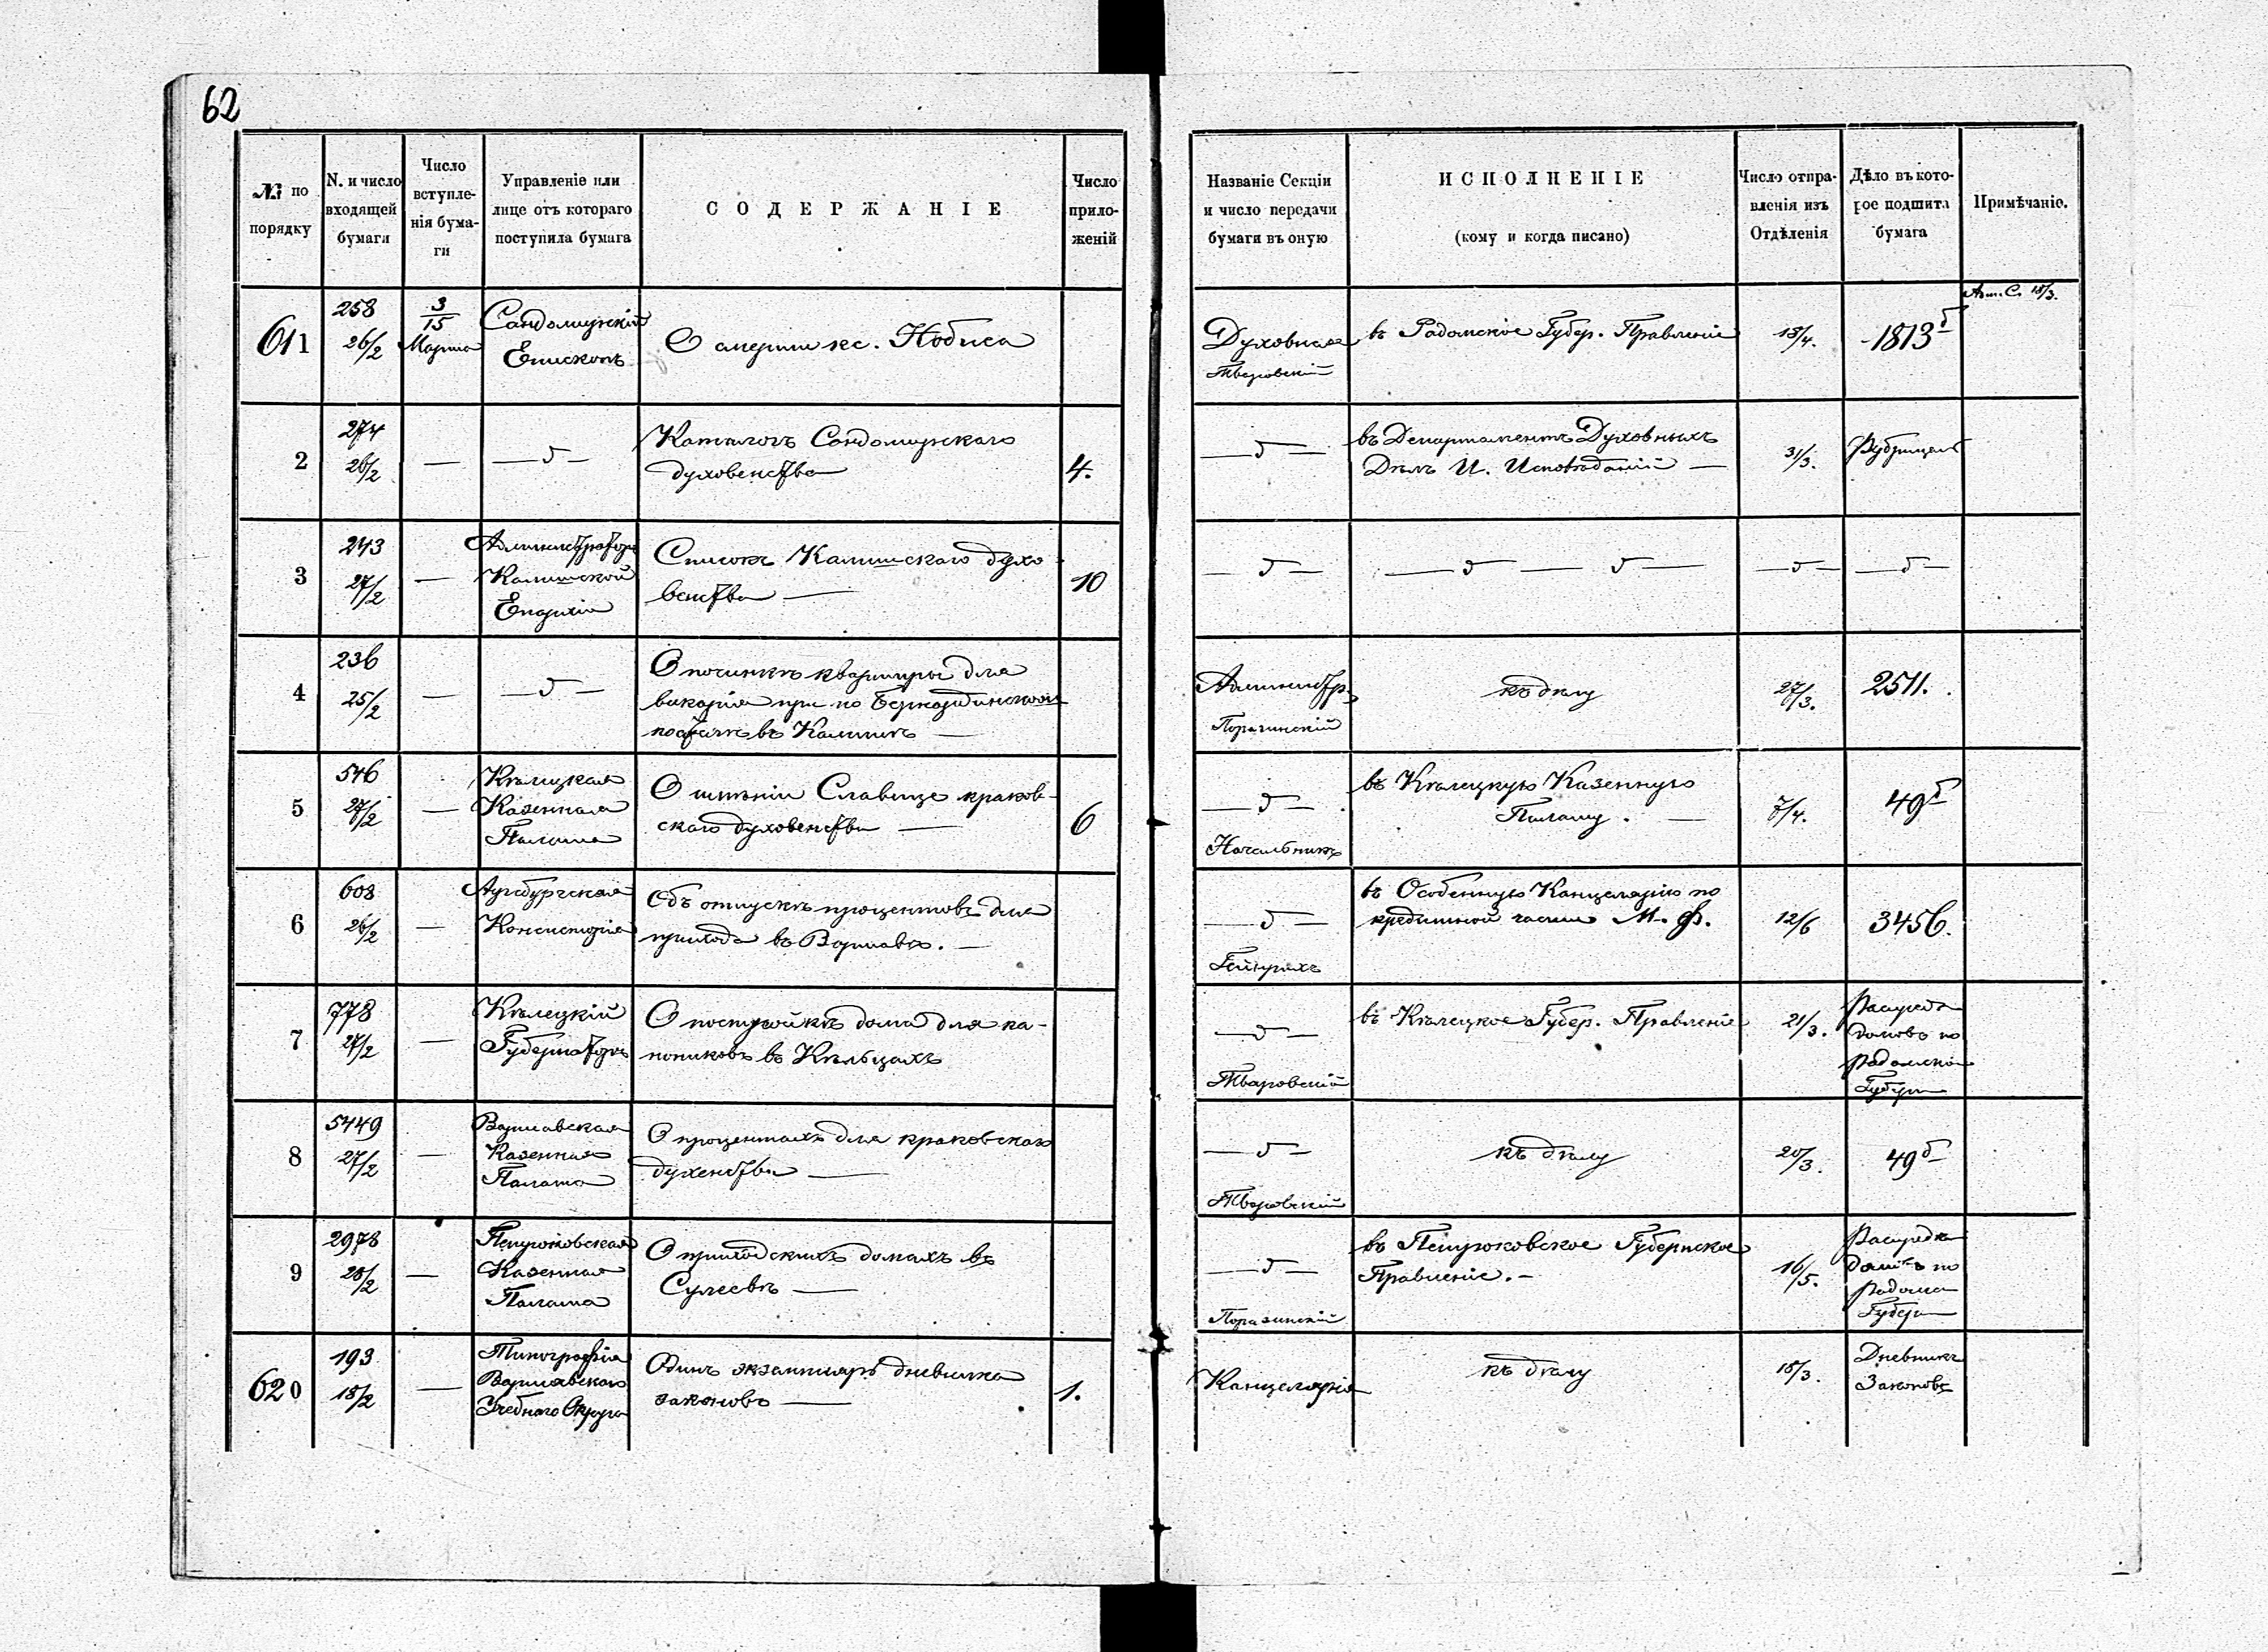 62
№ по порядку
N. и число входящей бумаги
Число вступле-
нія бума-
ги
Управленіе или
лице отъ котораго
поступила бумага
СОДЕРЖАНІЕ
Число
прило-
женій
Названіе Секціи
и число передачи
бумаги въ оную
ИСПОЛНЕНІЕ
(кому и когда писано)
Число отпра-
вленія изъ
Отдѣленія
Дѣло въ кото-
рое подшита
бумага
Примѣчаніе.
611
258
26/2
3/15
Марта
Сандомирскій
Епископъ
О смерти кс. Нобиса
Духовная
Тваровскій
въ Радомское Губер. Правленіе
18/4.
1813 б
18/3.
2
274
26/2
—
— б —
Каталогъ Сандомирскаго
духовенства
4.
— б —
въ Департаментъ Духовныхъ
Дѣлъ И. Исповѣданій —
31/3.
Рубрицель
3
243
27/2
—
Администраторъ
Калишской
Епархіи
Списокъ Калишскаго духо-
венства —
10
— б —
— б — б —
— б —
— б —
4
236
25/2
—
— б —
О починкѣ квартиры для
викарія при по Бернардинскомъ
костелѣ въ Калишѣ —
Администр.
Поразинскій
къ дѣлу
27/3.
2511.
5
546
27/2
—
Кѣлецкая
Казенная
Палата
О имѣніи Славице краков-
скаго духовенства —
6
— б —
Начальникъ
въ Кѣлецкую Казенную
Палату. —
7/4.
49 б
6
608
26/2
—
Аугсбургская
Консисторія
Объ отпускѣ процентовъ для
прихода въ Варшавѣ. —
— б —
Гейнрихъ
въ Особенную Канцелярію по
кредитной части М. Ф.
12/6
3456.
7
778
27/2
—
Кѣлецкій
Губернаторъ
О постройкѣ дома для ка-
нониковъ въ Кѣльцахъ
— б —
Тваровскій
въ Кѣлецкое Губер. Правленіе
21/3.
домовъ по
Радомской
Губерн
8
5449
27/2
—
Варшавская
Казенная
Палата
О процентахъ для краковскаго
духенства —
— б —
Тваровскій
къ дѣлу
20/3.
49 б
9
2978
28/2
—
Петроковская
Казенная
Палата
О приходскихъ домахъ въ
Сулеевѣ —
— б —
Поразинскій
въ Петроковское Губернское
Правленіе. —
16/5.
по
Радом
Губерн
620
193
18/2
—
Типографія
Варшавскаго
Учебнаго Округа
Одинъ экземпляръ дневника
законовъ —
1.
Канцелярія
къ дѣлу
18/3.
Дневникъ
Законовъ